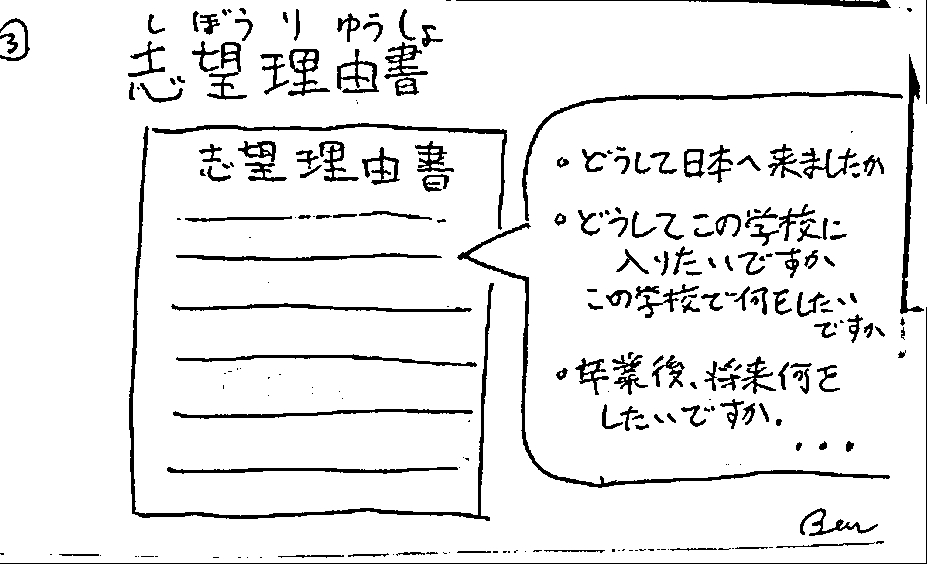 ③
しぼうりゆうしょ
志望理由書
志望理由書
。どうして日本へ来ましたか
。どうしてこの学校に
入りたいですか
この学校で何をしたい
ですか
。卒業後、将来何を
したいですか.
...
Ben